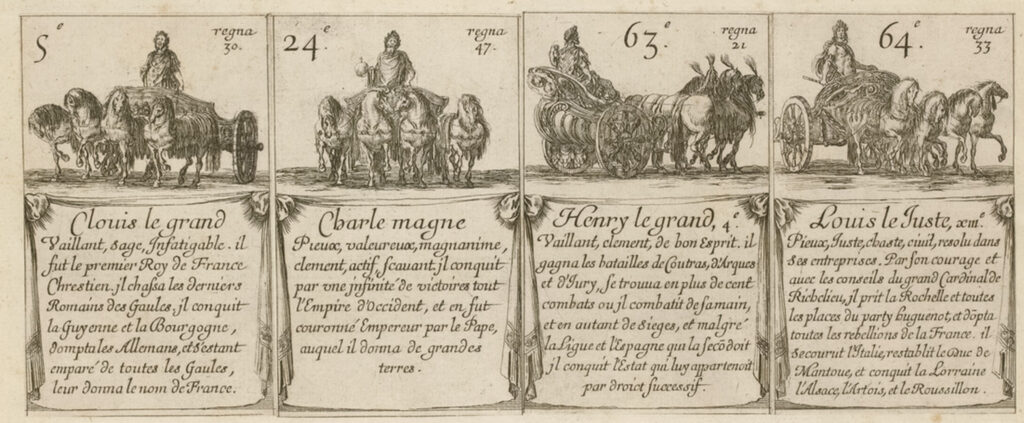 5.e
regna
30.
Clouis le grand
Vaillant, sage, Infatigable. il
fut le premier Roy de France
Chrestien. jl chassa les derniers
Romains des Gaules, jl conquit
la Guyenne et la Bourgogne,
dompta les Allemans, et s'estant
emparé de toutes les Gaules,
leur donna le nom de France.
24.e
regna
47.
Charle magne
Pieux, valeureux, magnanime,
clement, actif, scauant. jl conquit
par vne jnfinite de victoires tout
l'Empire d'Occident, et en fut
couronné Empereur par le Pape,
auquel il donna de grandes
terres.
63.e
regna
21
Henry le grand, 4.e
Vaillant, clement, de bon Esprit. il
gagna les batailles de Coutras, d'Arques
et d'Iury, se trouua en plus de cent
combats ou jl combatit de sa main,
et en autant de sieges, et malgré
la Ligue et l'Espagne qui la secōdoit
jl conquit l'Estat qui luy appartenoit
par droict successif.
64.e
regna
33
Louis le Iuste, xiii.e
Pieux, Iuste, chaste, ciuil, resolu dans
ses entreprises. Par son courage et
auec les conseils du grand Cardinal de
Richelieu, jl prit la Rochelle et toutes
les places du party huguenot, et dōpta
toutes les rebellions de la France. il
secourut l'Italie, restablit le Duc de
Mantoue, et conquit la Lorraine
l'Alsace, l'Artois, et le Roussillon.